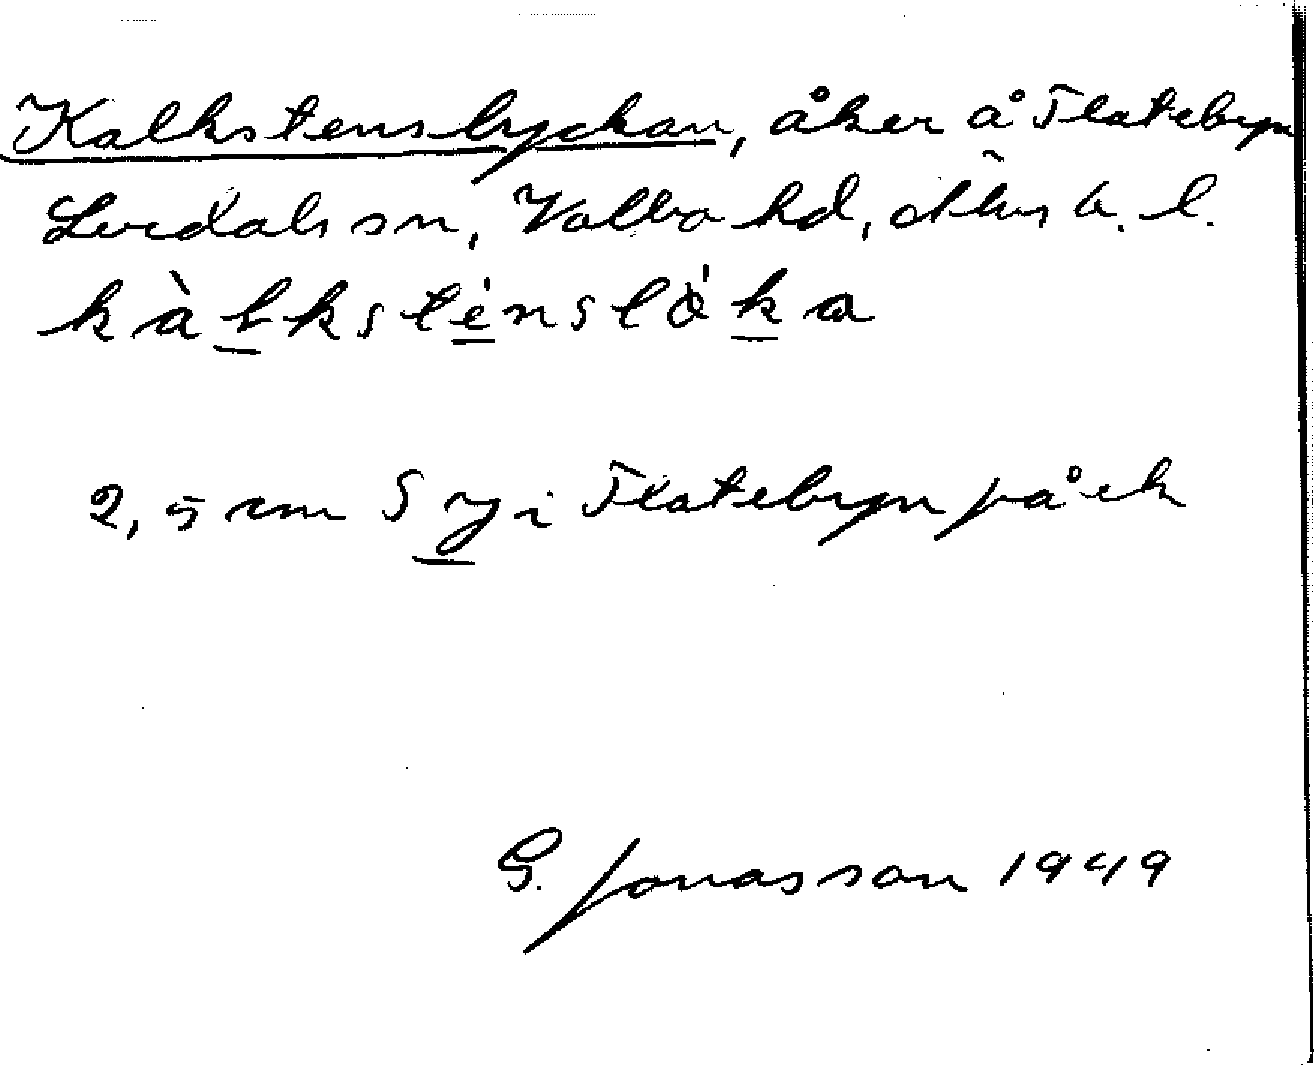 Kalkstenslyckan, åker å Flatebyn
Lerdals sn, Valbo hd, Älvsb. l.
kàlksténslö̀ka
2,5 cm S y i Flatebyn på ek
G. Jonasson 1949